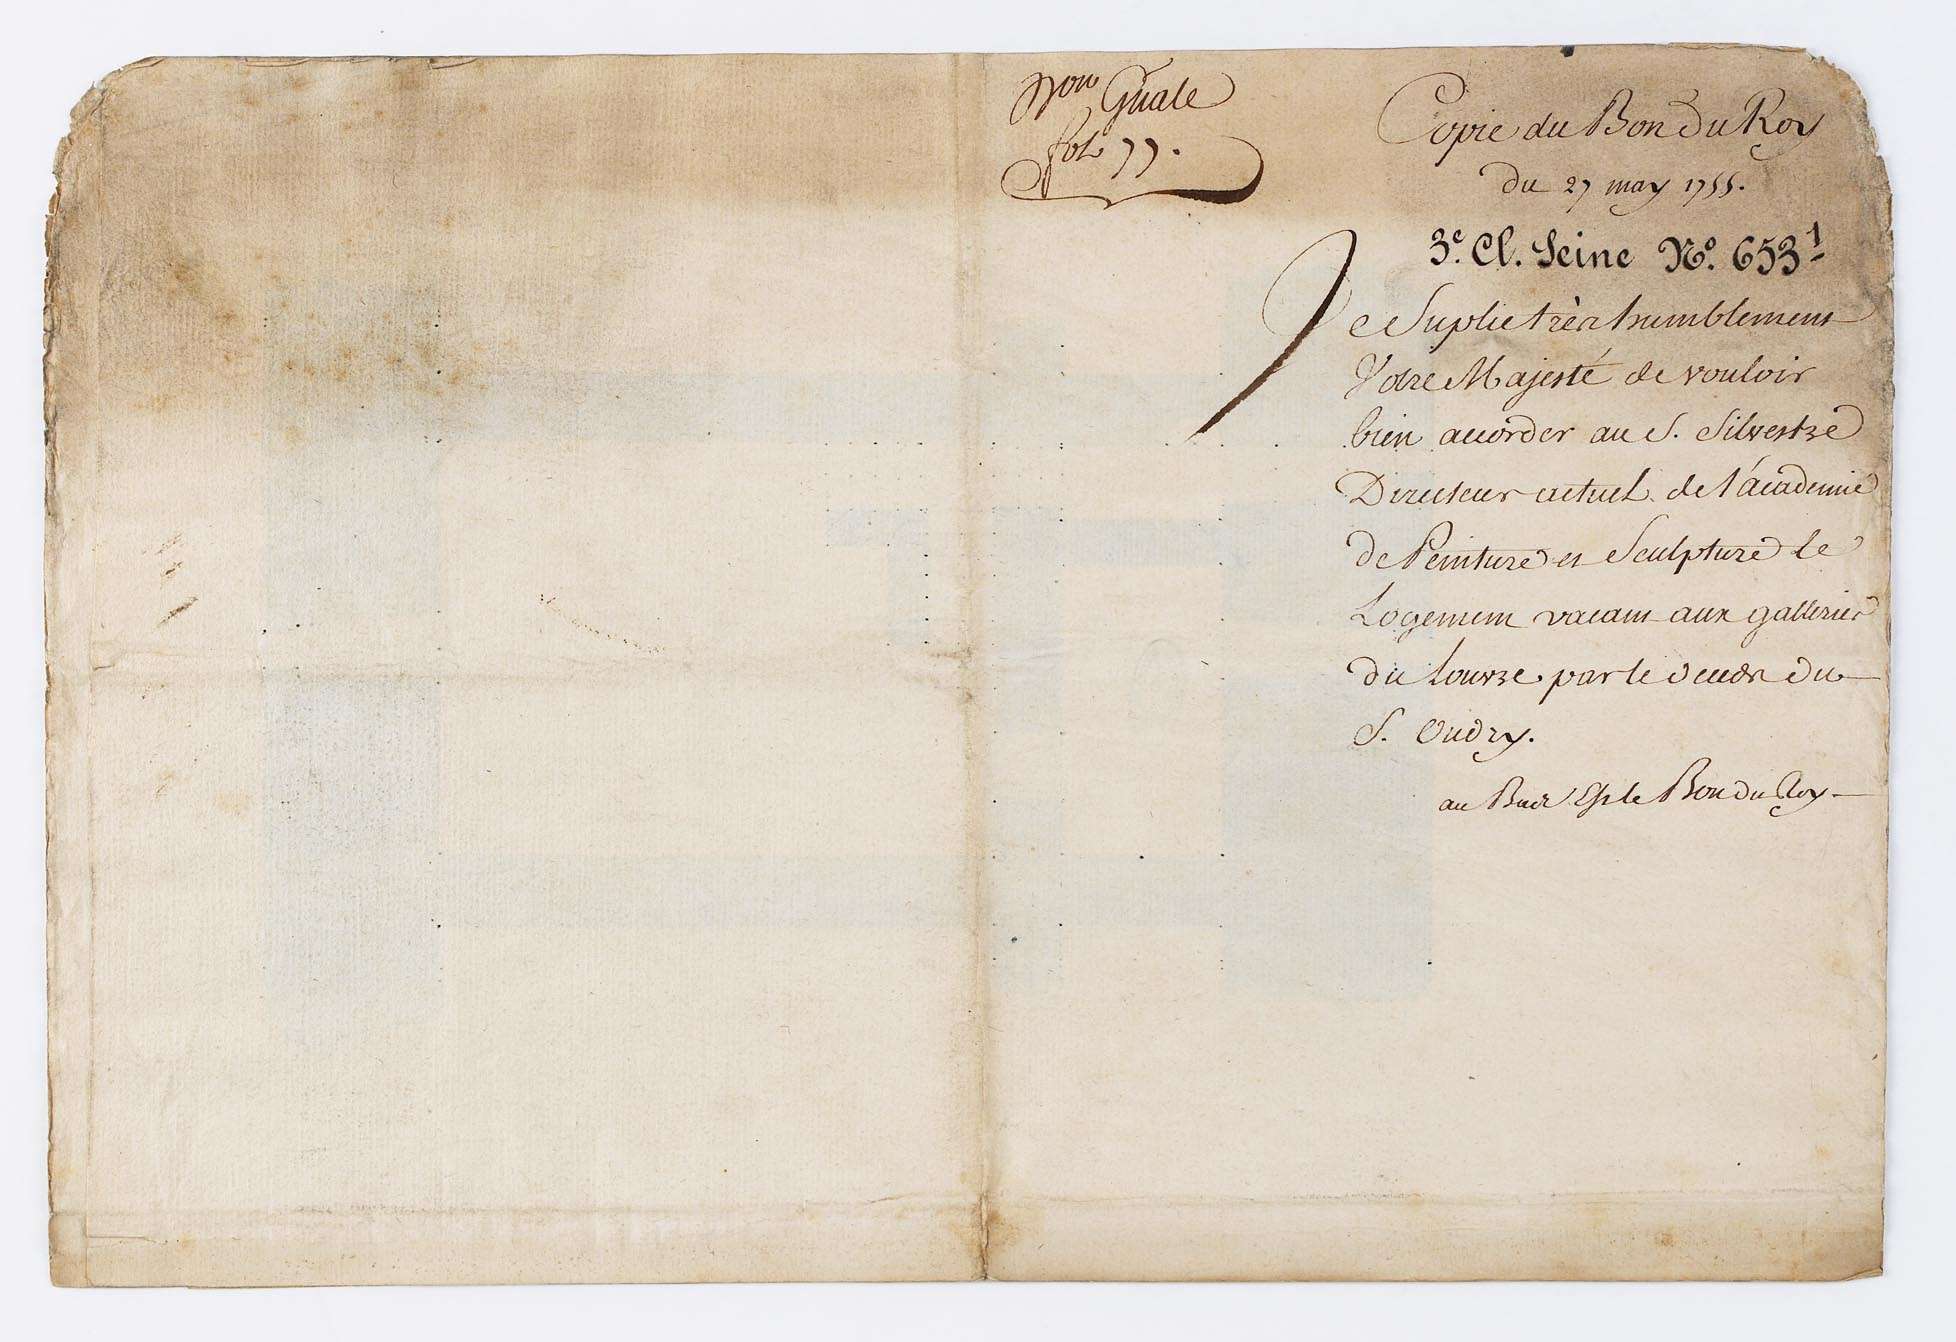 Don Gñale
fol. 77.
Copie du Bon du Roy
du 27 may 1755.
3e. Cl. Seine No. 653 1
Je Suplie très humblement
Votre Majesté de vouloir
bien accorder au S. Silvestre
Directeur actuel de l'académie
de Peinture et Sculpture le
Logement vacant aux galleries
du Louvre par le deceds du
S. Oudry.
au Bas Est le Bon du Roy